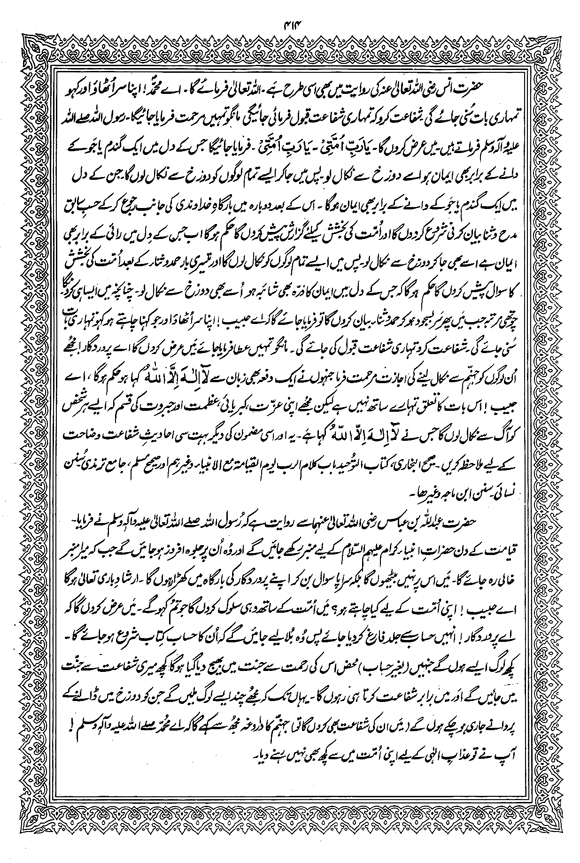 ۴۱۴
حضرت انس رضی اللہ تعالیٰ عنہ کی روایت میں بھی اسی طرح ہے۔ اللہ تعالیٰ فرمائے گا۔ اے محمد! اپنا سر اٹھاؤ اور کہو
تمہاری بات سُنی جائے گی شفاعت کرو کہ تمہاری شفاعت قبول فرمائی جائیگی مانگو تمہیں مرحمت فرمایا جائیگا۔ رسول اللہ صلے اللہ
علیہ وآلہ وسلم فرماتے ہیں، میں عرض کروں گا۔ یَا رَبِّ اُمَّتِیْ۔ یَا رَبِّ اُمَّتِیْ۔ فرمایا جائیگا جس کے دل میں ایک گندم یا جَو کے
دانے کے برابر بھی ایمان ہو اسے دوزخ سے نکال لو۔ پس میں جا کر ایسے تمام لوگوں کو دوزخ سے نکال لوں گا جن کے دل
میں ایک گندم یا جَو کے دانے کے برابر بھی ایمان ہو گا۔ اس کے بعد دوبارہ میں بارگاہِ خداوندی کی جانب رجوع کر کے حسبِ سابق
مدح و ثنا بیان کرنی شروع کر دوں گا اور اُمت کی بخشش کیلئے گزارش پیش کروں گا حکم ہو گا اب جس کے دل میں رائی کے برابر بھی
ایمان ہے اسے بھی جا کر دوزخ سے نکال لو۔ پس میں ایسے تمام لوگوں کو نکال لوں گا اور تیسری بار حمد و ثنا کے بعد اُمت کی بخشش
کا سوال پیش کروں گا حکم ہو گا کہ جس کے دل میں ایمان کا ذرہ بھی شائبہ ہو اُسے بھی دوزخ سے نکال لو۔ چنانچہ میں ایسا ہی کرونگا
چوتھی مرتبہ جب میں پھر سر بسجود ہو کر حمد و ثنا بیان کروں گا تو فرمایا جائے گا کہ اے حبیب! اپنا سر اٹھاؤ اور جو کہنا چاہتے ہو کہو تمہاری بات
سُنی جائے گی۔ شفاعت کرو تمہاری شفاعت قبول کی جائے گی۔ مانگو تمہیں عطا فرمایا جائے، میں عرض کروں گا اے پروردگار! مجھے
اُن لوگوں کو جہنم سے نکال لینے کی اجازت مرحمت فرما جنہوں نے ایک دفعہ بھی زبان سے لَآ اِلٰہَ اِلَّا اللّٰہُ کہا ہو حکم ہو گا، اے
حبیب! اس بات کا تعلق تمہارے ساتھ نہیں ہے لیکن مجھے اپنی عزت، کبریائی، عظمت اور جبروت کی قسم کہ ایسے ہر شخص
کو آگ سے نکال لوں گا جس نے لَآ اِلٰہَ اِلَّا اللّٰہُ کہا ہے۔ یہ اور اسی مضمون کی دیگر بہت سی احادیثِ شفاعت وضاحت
کے لیے ملاحظہ کریں۔ صحیح البخاری، کتاب التوحید باب کلام الرب یوم القیامۃ مع الانبیاء وغیرہم اور صحیح مسلم، جامع ترمذی سُنن
نسائی سنن ابن ماجہ وغیرھا۔
حضرت عبداللہ بن عباس رضی اللہ تعالیٰ عنہما سے روایت ہے کہ رُسول اللہ صلے اللہ تعالیٰ علیہ وآلہٖ وسلم نے فرمایا۔
قیامت کے دن حضرات انبیاء کرام علیہم السلام کے لیے منبر رکھے جائیں گے اور وُہ اُن پر جلوہ افروز ہو جائیں گے جب کہ میرا منبر
خالی رہ جائے گا۔ میں اس پر نہیں بیٹھوں گا بلکہ سراپا سوال بن کر اپنے پروردگار کی بارگاہ میں کھڑا ہوں گا۔ ارشاد باری تعالیٰ ہو گا
اے حبیب! اپنی اُمت کے لیے کیا چاہتے ہو؟ میں اُمت کے ساتھ وہی سلوک کروں گا جو تم کہو گے۔ میں عرض کروں گا کہ
اے پروردگار! اُنہیں حساب سے جلد فارغ کر دیا جائے پس وُہ بُلائے جائیں گے کہ اُن کا حساب کتاب شروع ہو جائے گا۔
کچھ لوگ ایسے ہوں گے جنہیں (بغیر حساب) محض اس کی رحمت سے جنت میں بھیج دیا گیا ہو گا کچھ میری شفاعت سے جنت
میں جائیں گے اور میں برابر شفاعت کرتا ہی رہوں گا۔ یہاں تک کہ مجھے چند ایسے لوگ ملیں گے جن کو دوزخ میں ڈالنے کے
پروانے جاری ہو چکے ہوں گے (میں اُن کی شفاعت بھی کروں گا تو) جہنم کا داروغہ مجھ سے کہے گا کہ اے محمد صلے اللہ علیہ وآلہٖ وسلم!
آپ نے تو عذابِ الٰہی کے لیے اپنی اُمت میں سے کچھ بھی نہیں رہنے دیا۔